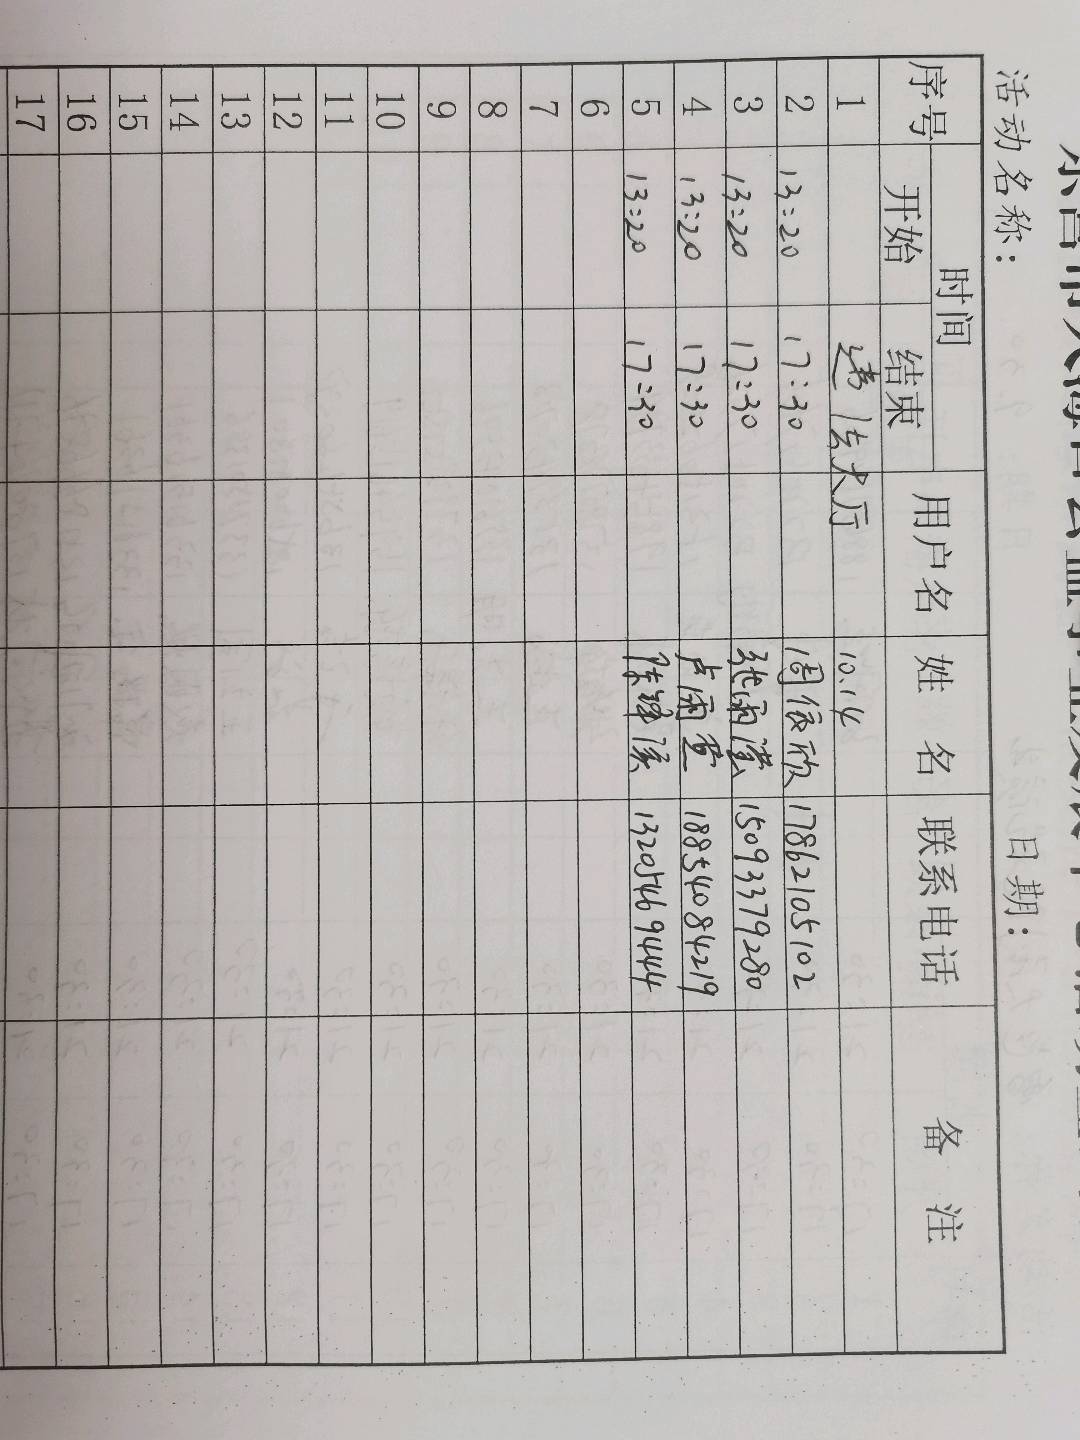 活动名称： 日期：
序号 时间 用户名 姓名 联系电话 备注
开始 结束
1 违法大厅 10.14
2 13:20 17:30 周依欣 17862105102
3 13:20 17:30 张雨 15093379280
4 13:20 17:30 卢雨萱 18854084219
5 13:20 17:30 陈 13205469444
6
7
8
9
10
11
12
13
14
15
16
17